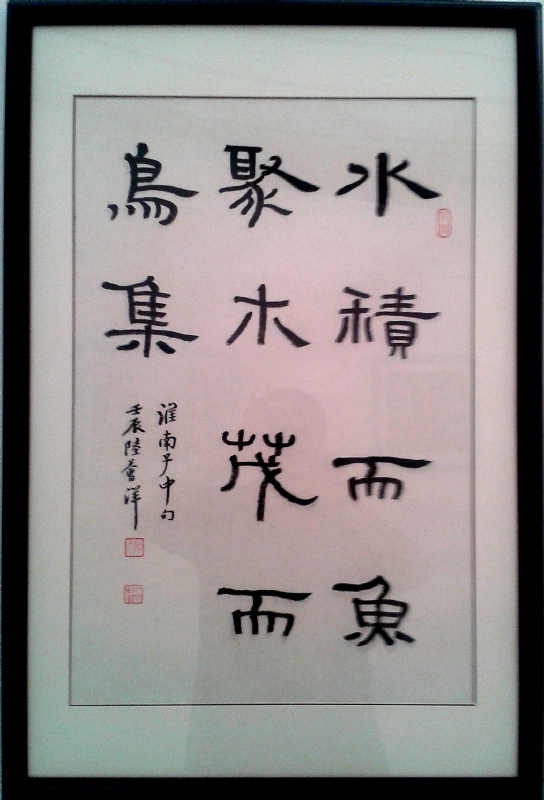 水積而魚
聚木茂而
鳥集
淮南子中句
壬辰陸薈洋